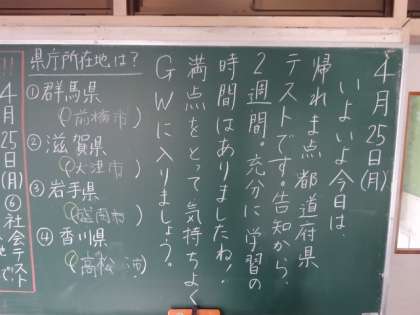 4月25日(月)
いよいよ今日は、
帰れま点都道府県
テストです。告知から、
2週間。充分に学習の
時間はありましたね!
満点をとって気持ちよく
GWに入りましょう。
県庁所在地は?
①群馬県
(前橋市)
②滋賀県
(大津市)
③岩手県
(盛岡市)
④香川県
(高松市)
!!!
4月25日(月)⑥社会テスト